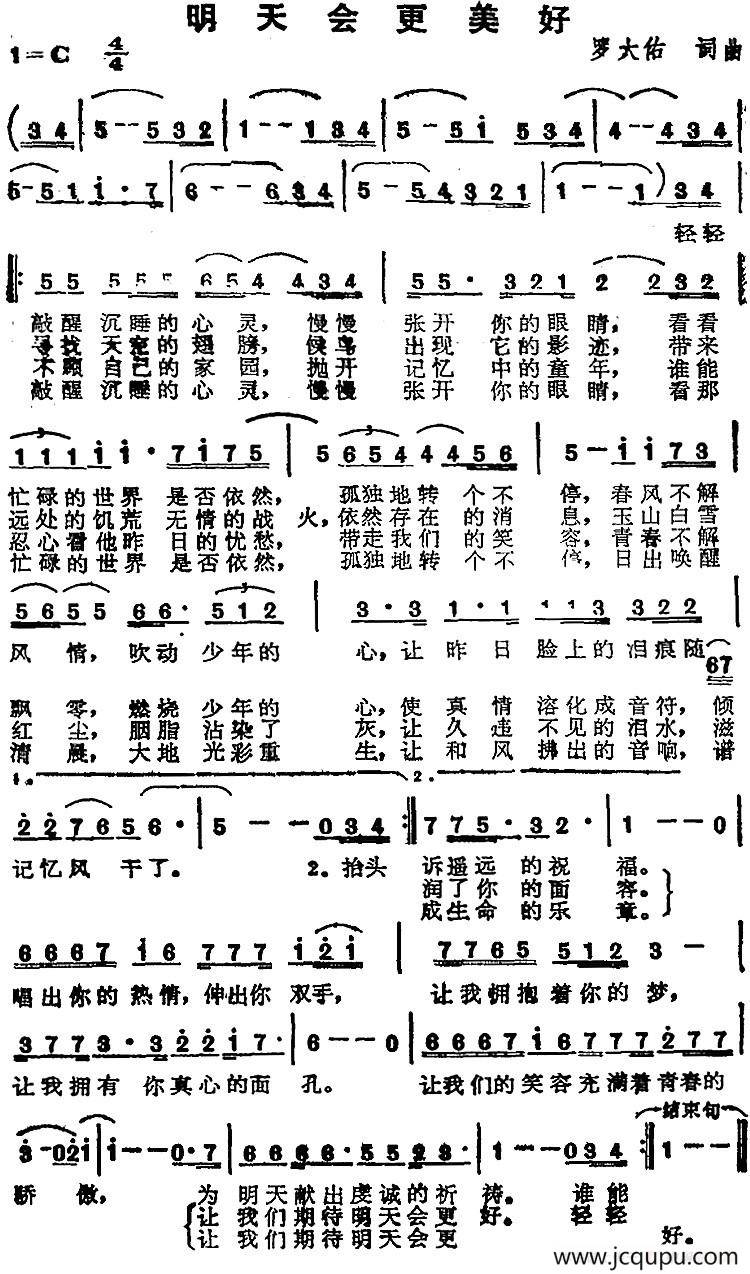 明天会更美好
1=C 4/4
罗大佑 词曲
(34 5--532 1--134 5-51 534 4--434
5-511·7 6--634 5-54321 1--1)34
轻轻
55 555 654 434 55· 321 2 232
敲醒 沉睡的 心灵, 慢慢 张开 你的眼睛, 看看
寻找 天空的 翅膀, 候鸟 出现 它的影迹, 带来
不顾 自己的 家园, 抛开 记忆 中的童年, 谁能
敲醒 沉睡的 心灵, 慢慢 张开 你的眼睛, 看那
3 3
11111·7175 5654 4456 5-1173
忙碌的世界 是否依然, 孤独地转 个不 停, 春风不解
远处的饥荒 无情的战 火, 依然存在 的消 息, 玉山白雪
忍心看他昨 日的忧愁, 带走我们 的笑 容, 青春不解
忙碌的世界 是否依然, 孤独地转 个不 停, 日出唤醒
3
5655 66· 512 3·3 1·1 113 322
风 情, 吹动 少年的 心, 让 昨 日 脸上的 泪痕 随
67
飘 零, 燃烧 少年的 心, 使 真 情 溶化成音符, 倾
红 尘, 胭脂 沾染了 灰, 让 久 违 不见的泪水, 滋
清 晨, 大地 光彩重 生, 让 和 风 拂出的音响, 谱
1. 2.
227656· 5--034 775·32· 1--0
记忆风 干了。 2. 抬头 诉遥远 的祝 福。
润了你 的面 容。
成生命 的乐 章。
6667 16 777 121 7765 512 3-
唱出你的 热情, 伸出你 双手, 让我拥抱着你的 梦,
3773·32217· 6--0 6667167777277
让我拥有 你真心的面 孔。 让我们的笑容充满着青春的
结束句
3-021 1--0·7 6666·5523· 1--034 1--
骄 傲, 为 明天献出虔诚的祈 祷。 谁能
让 我们期待明天会更 好。 轻轻
让 我们期待明天会更 好。
www.jcqupu.com